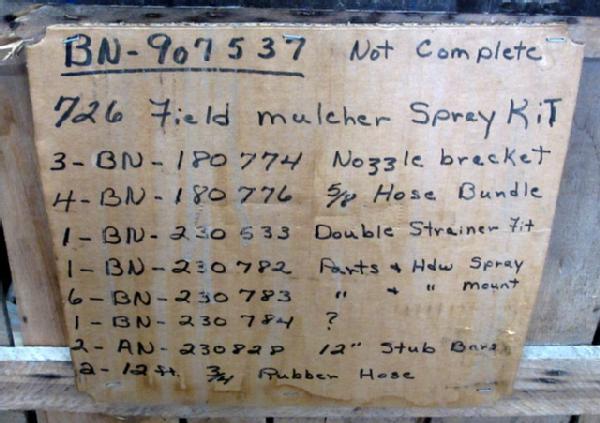 BN-907537 Not Complete
726 Field mulcher Spray KiT
3-BN-180774 Nozzle bracket
4-BN-180776 5/8 Hose Bundle
1-BN-230533 Double Strainer Fit
1-BN-230782 Parts & Hdw Spray
6-BN-230783 " & " mount
1-BN-230784 ?
2-AN-230828 12" Stub Bars
2-12 ft. 3/4 Rubber Hose